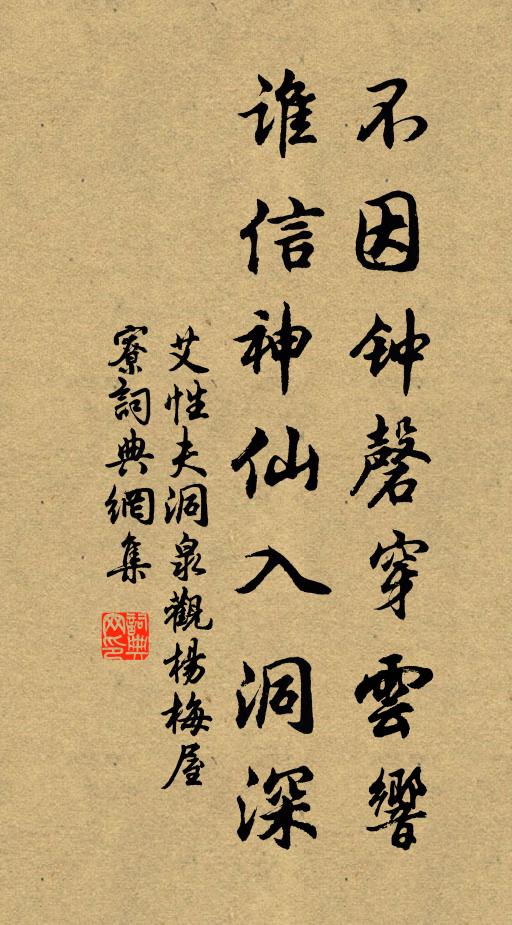 不因钟磬穿雲響
谁信神仙入洞深
艾性夫洞泉觀楊梅屋
寮詞典網集
詞典网印